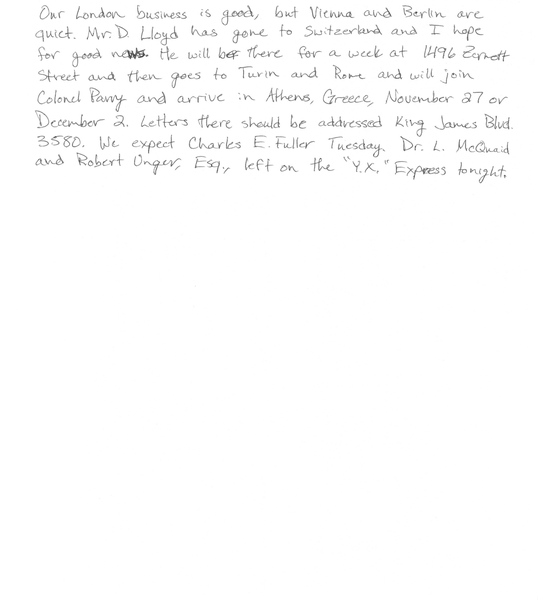 Our London business is good, but Vienna and Berlin are
quiet. Mr. D. Lloyd has gone to Switzerland and I hope
for good news. He will be there for a week at 1496 Zermott
Street and then goes to Turin and Rome and will join
Colonel Parry and arrive in Athens, Greece, November 27 or
December 2. Letters there should be addressed King James Blvd.
3580. We expect Charles E. Fuller Tuesday. Dr. L. McQuaid
and Robert Unger, Esq., left on the "Y.X." Express tonight.